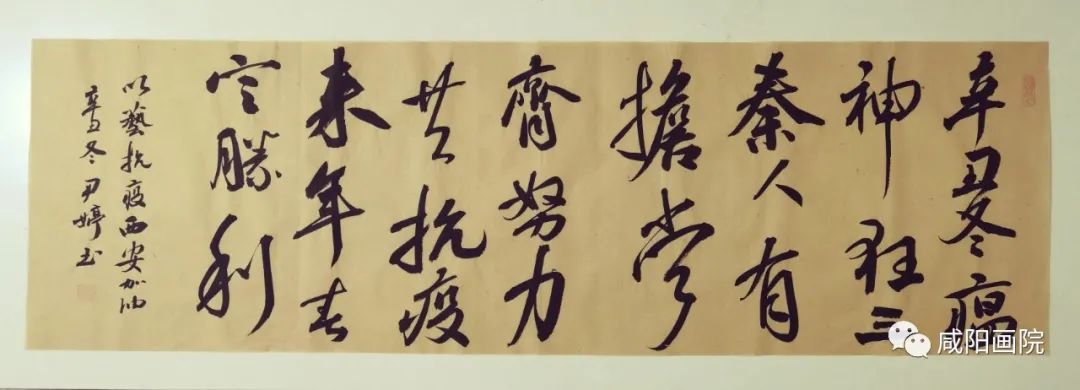 辛丑冬瘟
神狂三
秦人有
擔当
齊努力
共抗疫
来年春
定勝利
以藝抗疫西安加油
辛丑冬尹婷书
咸阳画院